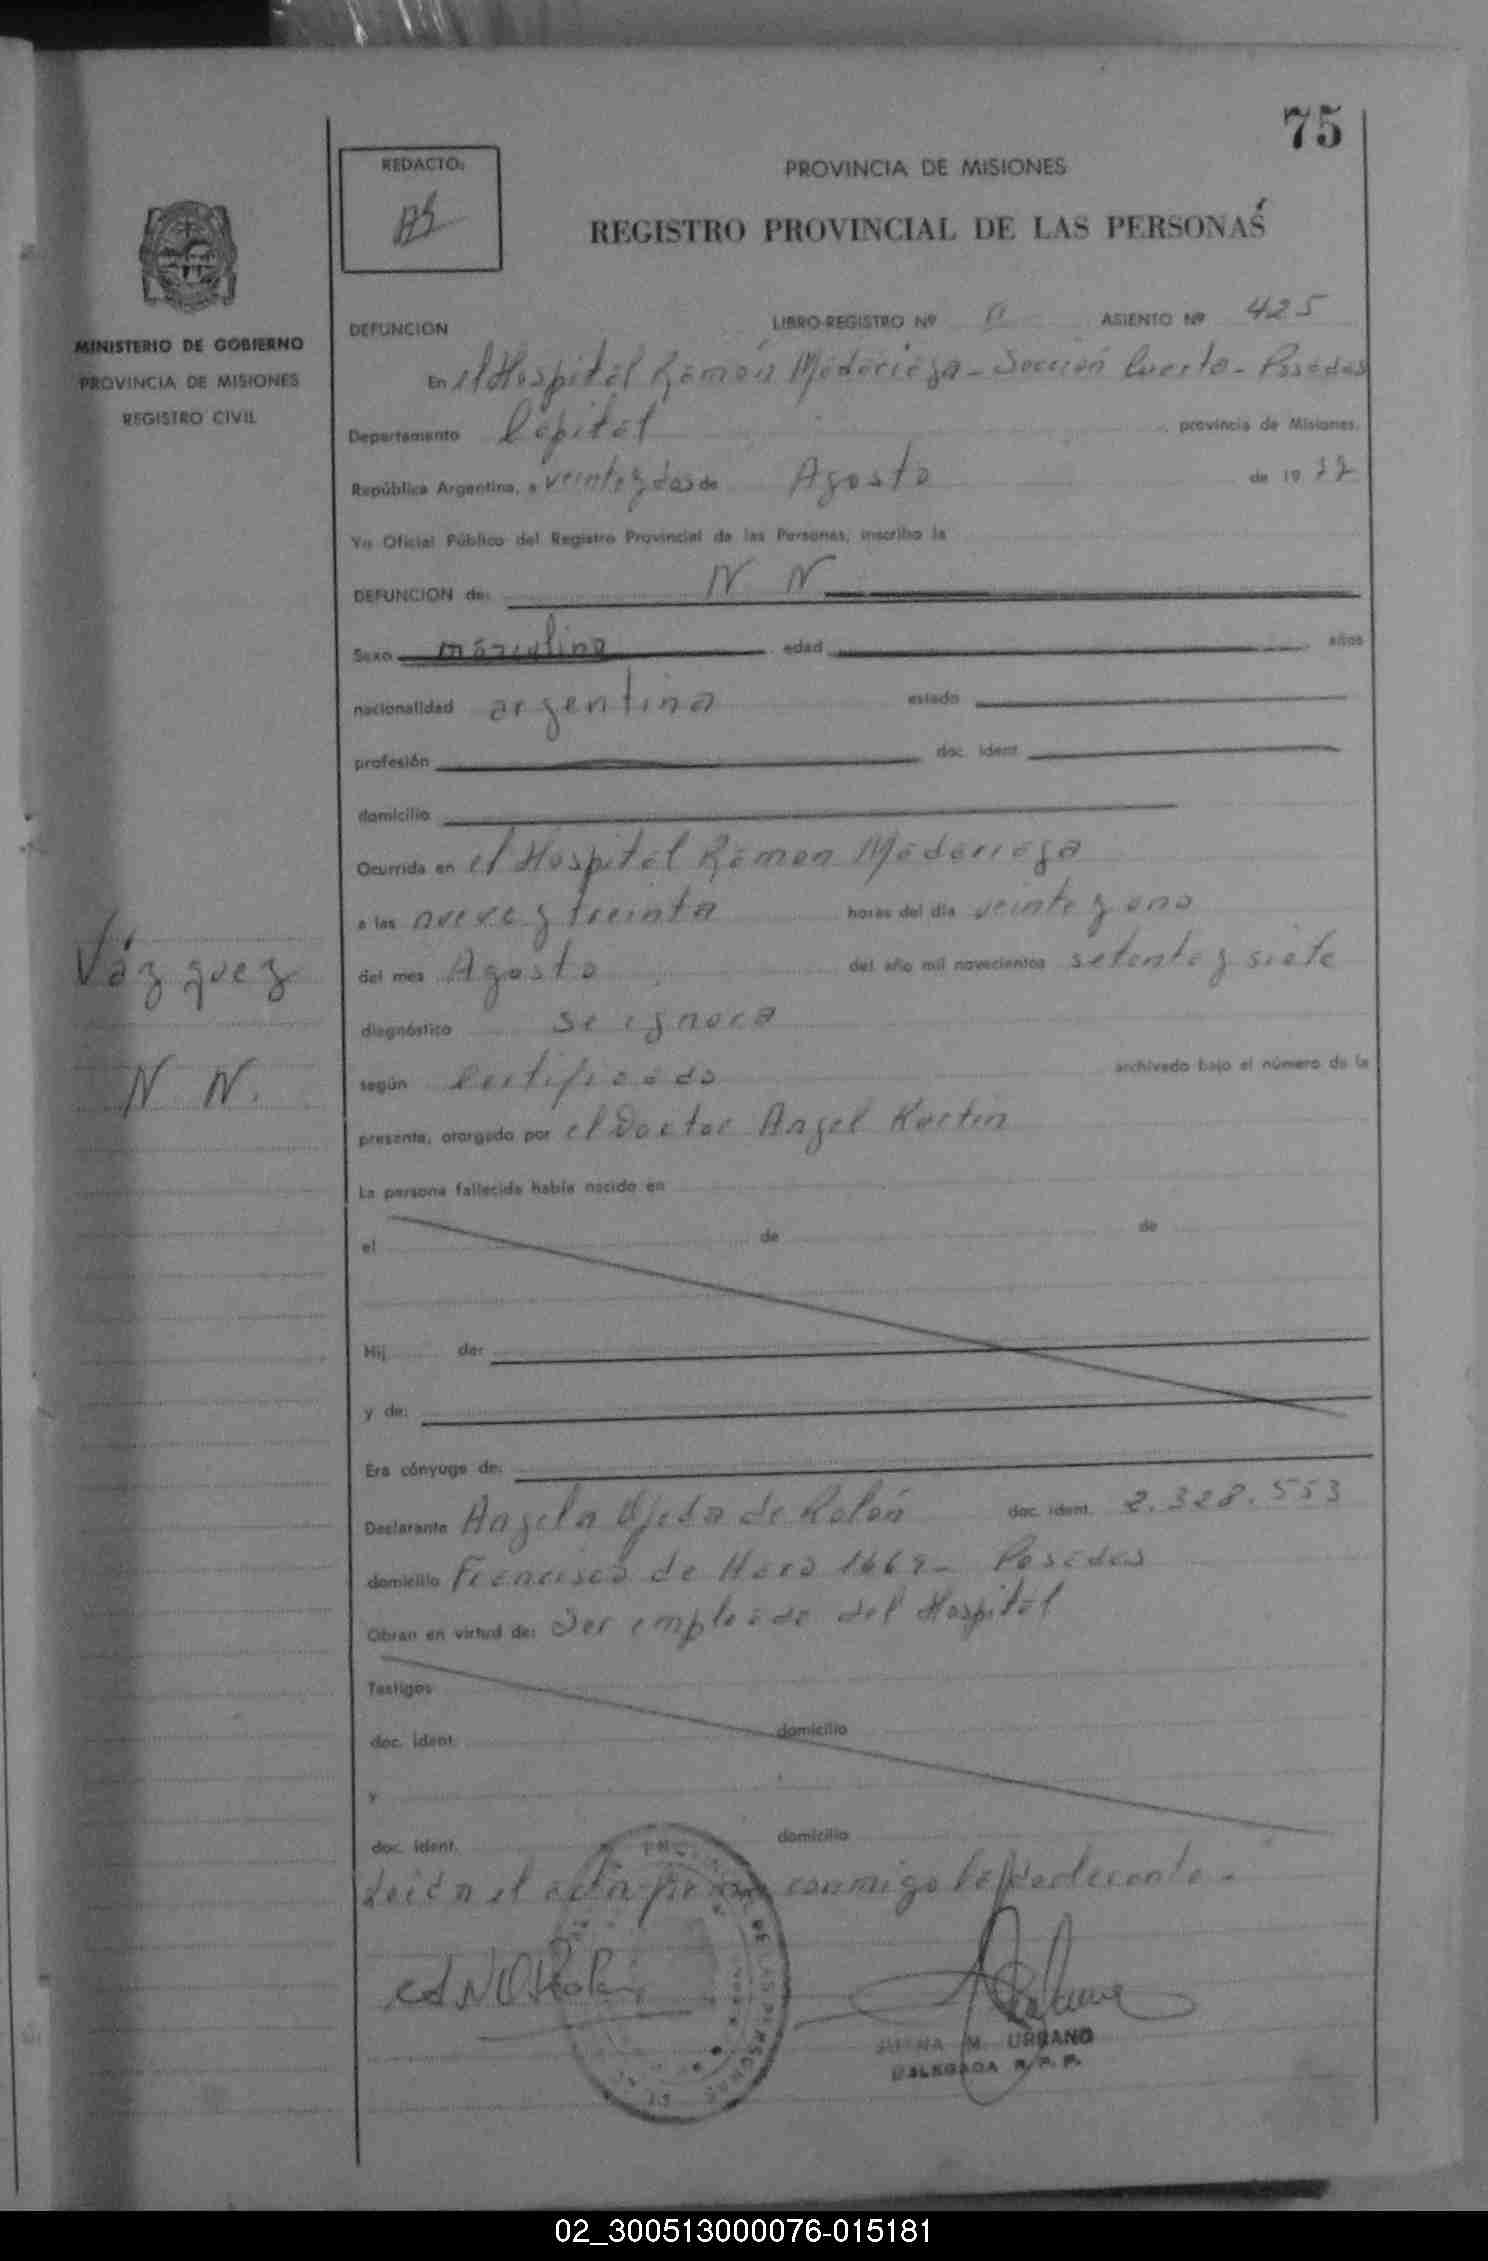 75
REDACTO:
PROVINCIA DE MISIONES
REGISTRO PROVINCIAL DE LAS PERSONAS
MINISTERIO DE GOBIERNO
PROVINCIA DE MISIONES
REGISTRO CIVIL
DEFUNCION LIBRO-REGISTRO Nº ASIENTO Nº 425
En el Hospital Ramón Madariaga - Sección Puerto - Posadas
Departamento Capital, provincia de Misiones,
República Argentina, a veinte y dos de Agosto de 1977
Yo Oficial Público del Registro Provincial de las Personas, inscribo la
DEFUNCION de: N N
Sexo masculino edad años
nacionalidad argentina estado
profesión doc. ident.
domicilio
Ocurrida en el Hospital Ramon Madariaga
a las nueve y treinta horas del día veinte y uno
del mes Agosto del año mil novecientos setenta y siete
diagnóstico se ignora
según Certificado archivado bajo el número de la
presente, otorgado por el Doctor Angel
Vázquez
N N.
La persona fallecida había nacido en
el de de
Hij de:
y de:
Era cónyuge de:
Declarante Angela Ojeda de Rolón doc. ident. 2.328.553
domicilio Francisco de Haro - Posadas
Obran en virtud de: Ser empleada del Hospital
Testigos
doc. ident. domicilio
y
doc. ident. domicilio
Leída el acta firma conmigo la declarante.
M. URBANO
DELEGADA R. P. P.
02_300513000076-015181